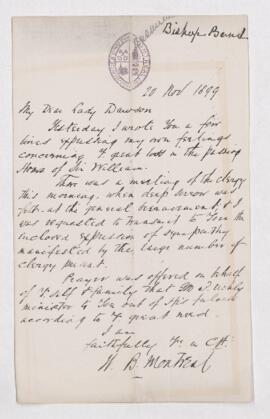 Bishop Bond
20 Nov 1899
My Dear Lady Dawson
Yesterday I wrote You a few
lines expressing my own feelings
concerning Yr great loss in the passing
Home of Sir William.
There was a meeting of the Clergy
this morning, when deep sorrow was
felt at the general bereavement, & I
was requested to transmit to You the
enclosed expression of sympathy
manifested by the large number of
Clergy present.
Prayer was offered on behalf
of Yr self & family that God
minister to You out of His fulness
according to Yr great need.
I am
faithfully Yr in Ct.
W. B. Montreal